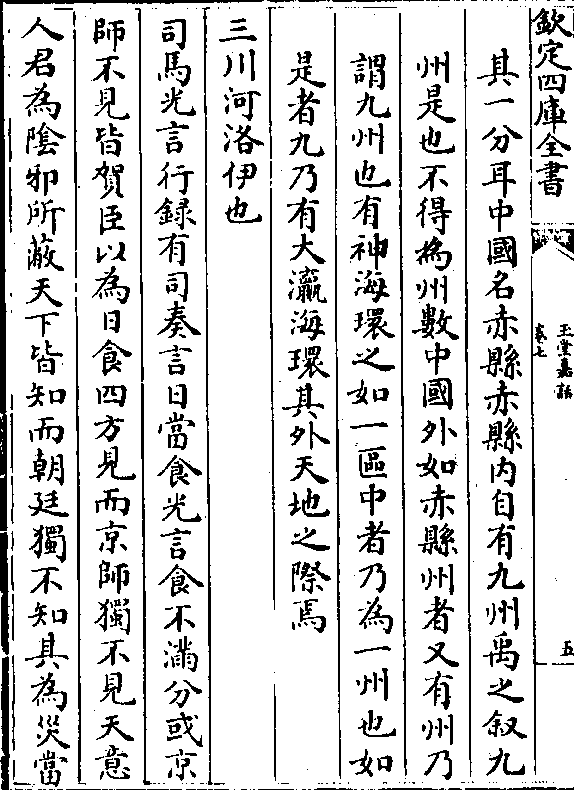 欽定四庫全書
玉堂嘉話
卷七
五
其一分耳中國名赤縣赤縣内自有九州禹之叙九
州是也不得為州數中國外如赤縣州者又有州乃
謂九州也有神海環之如一區中者乃為一州也如
是者九乃有大瀛海環其外天地之際焉
三川河洛伊也
司馬光言行録有司奏言日當食光言食不滿分或京
師不見皆賀臣以為日食四方見而京師獨不見天意
人君為陰邪所蔽天下皆知而朝廷獨不知其為災當